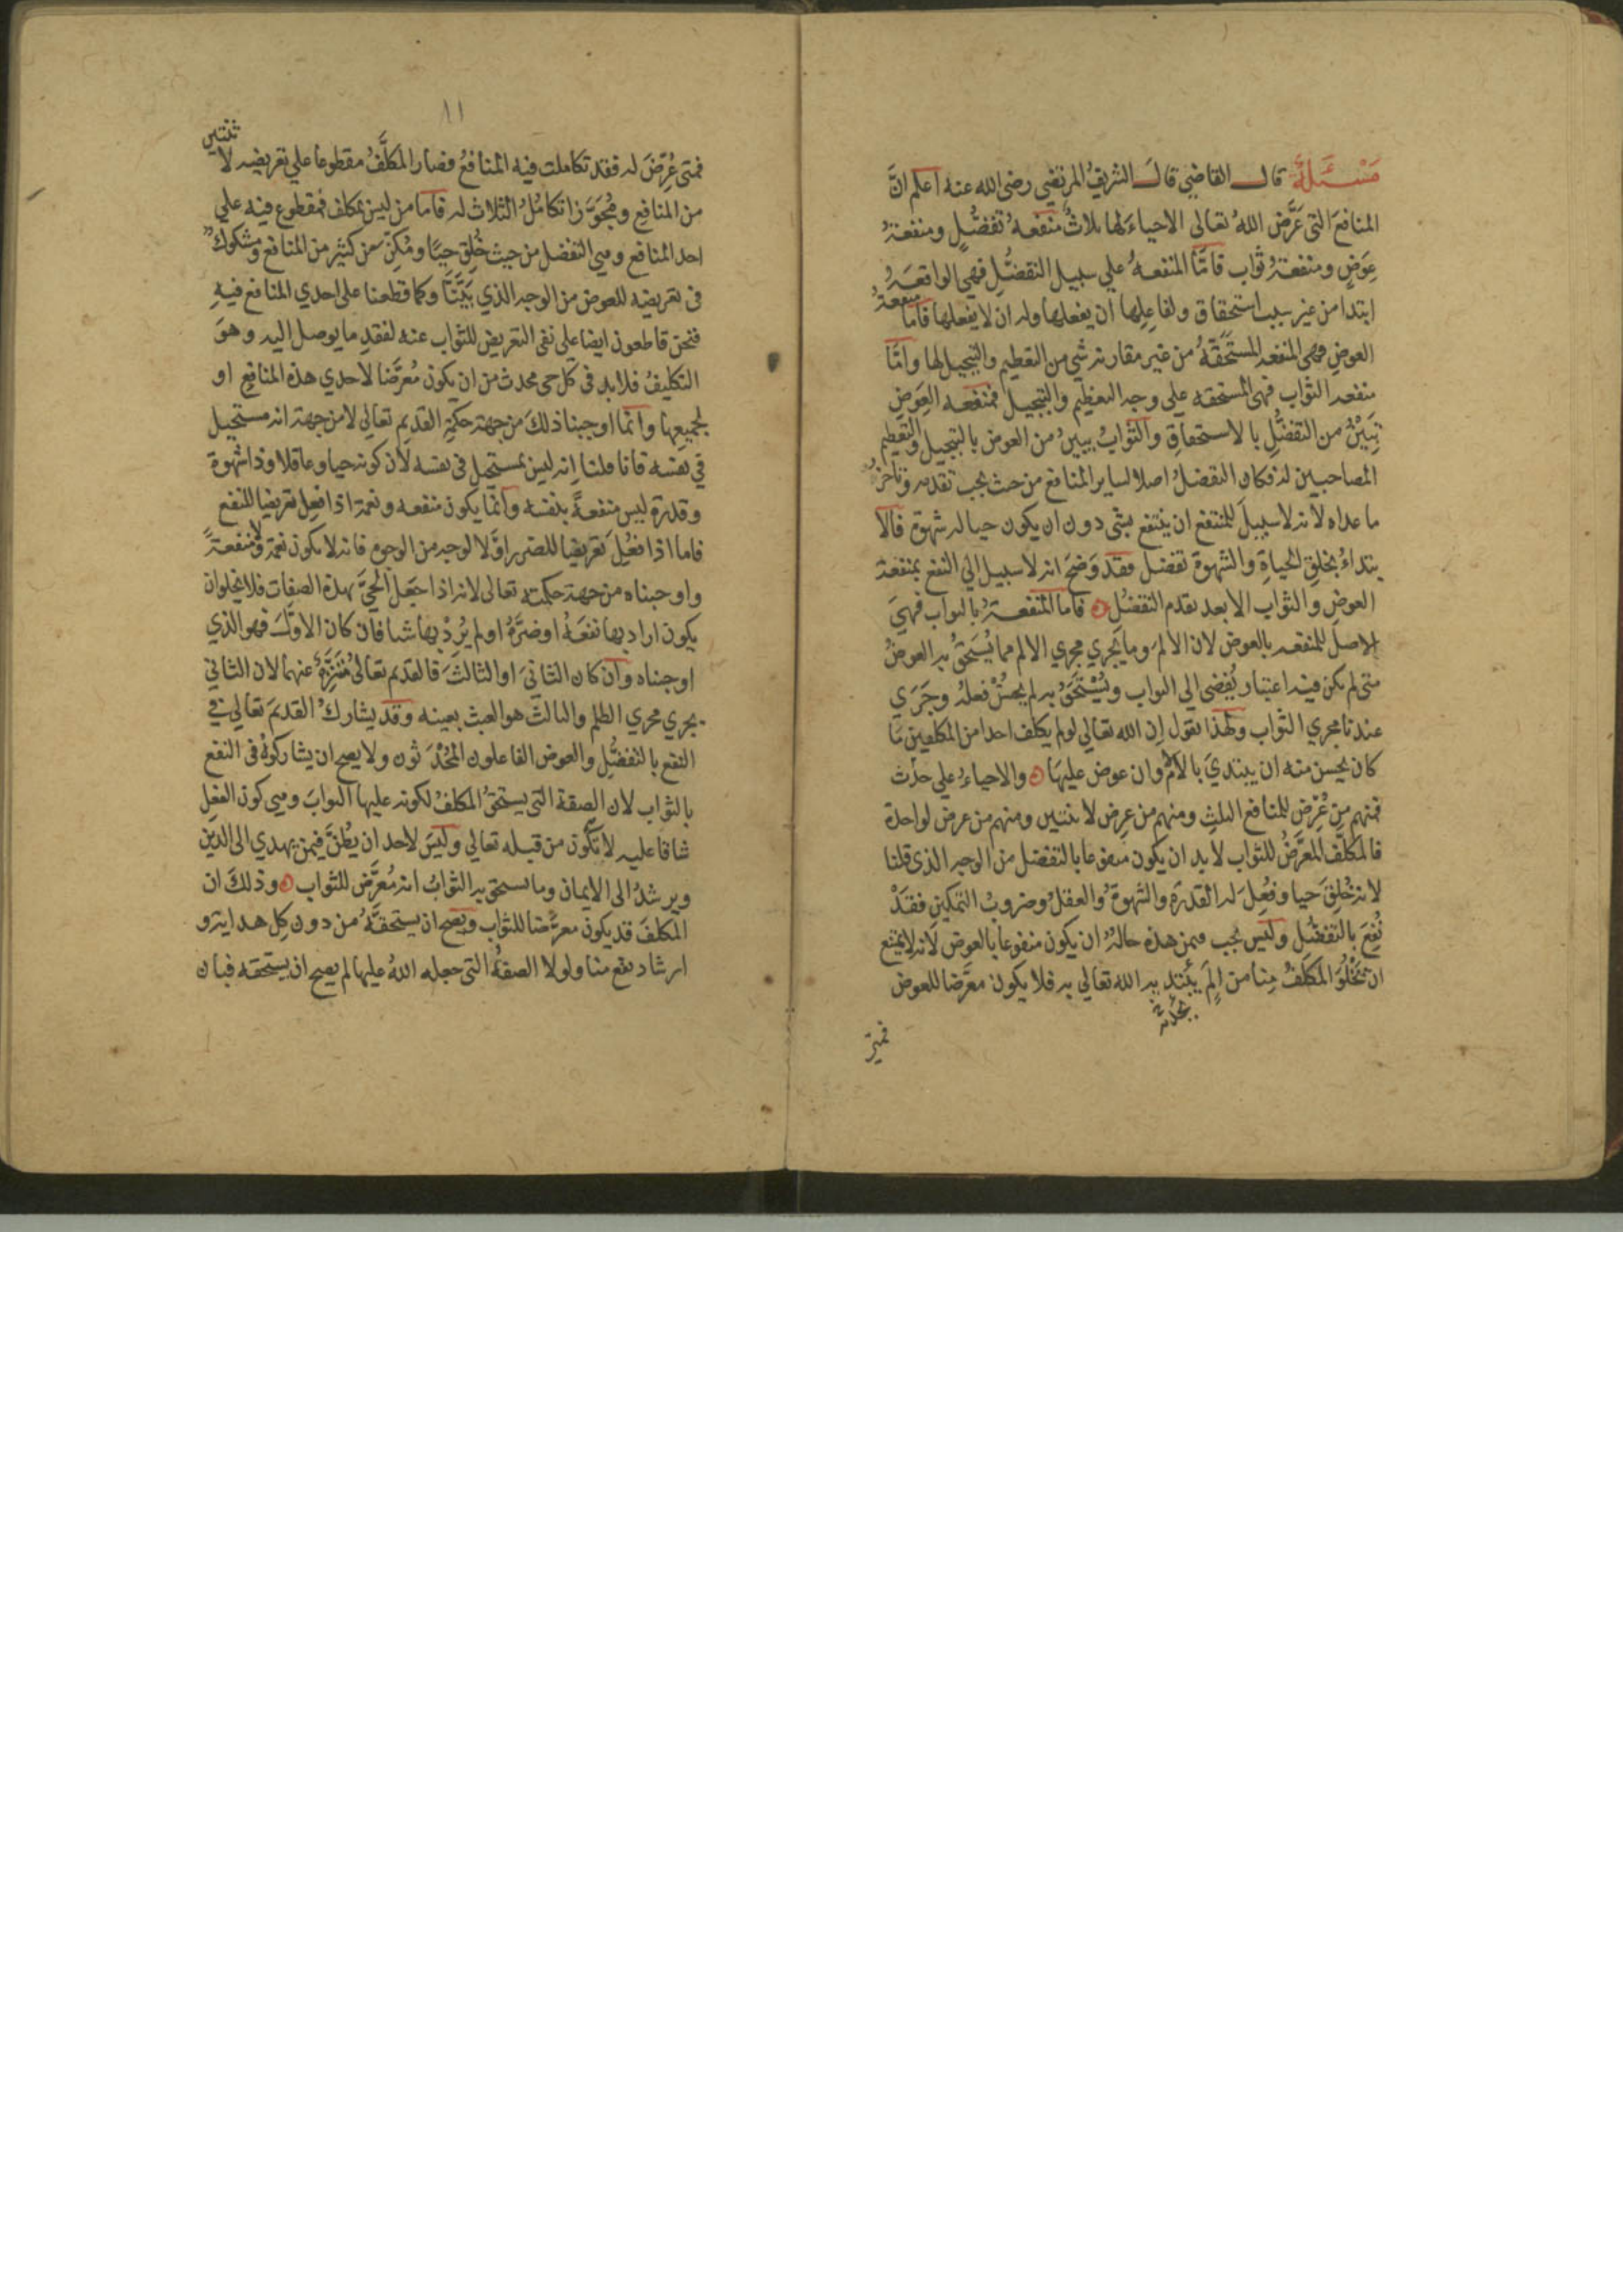 مَسْئَلَةٌ قال القاضي قالَ الشريفُ المرتضى رضى الله عنه اعلم انَّ
المنافعَ التى عَرَّض اللهُ تعالى الاحياءَ لها ثلاثٌ منفعهُ تفضُّلٍ ومنفعةُ
عِوَضٍ ومنفعةُ ثواب فامَّا المنفعهُ علي سبيل التفضُّلِ فهي الواقعهُ
ابتدا من غير سبب استحقاق ولفاعِلها ان يفعلها وله ان لا يفعلها فاما منفعةُ
العوضِ فهى المنفعه المستَحَقّهُ من غير مقارنة شي من التعظيم والتبجيل لها وامَّا
منفعه الثواب فهى المستحقه علي وجه التعظيم والتبجيل فمنفعه العِوَضِ
تَبِيْنُ من التفضُّلِ بالاستحقاقِ والثوابُ يبينُ من العوض بالتبجيل والتعظيم
المصاحبين له فكان التفضلُ اصلا لساير المنافع من حيث يجب تقدمه وتاخرُ
ما عداه لانه لا سبيلَ للمنتفع ان ينتفع بشى دون ان يكون حيا له شهوة فالا
بتداءُ بخلقِ الحياةِ والشهوة تفضل فقد وَضحَ انه لا سبيل الي النفع بمنفعة
العوضِ والثواب الا بعد تقدم التفضُلِ ۞ فاما المنفعةُ بالثواب فهيَ
الاصلُ للمنفعه بالعوض لان الالمَ وما يَجري مجري الالم مما يُستَحقُ به العوضُ
متى لم يكن فيه اعتبار يُفضي الى الثواب ويُسْتَحَقُ به لم يحسُنْ فعلُه وجَرَي
عندنا مجري الثواب ولهذا نقول إن الله تعالي لو لم يكلف احدا من المكلفين ما
كان يحسن منه ان يبتديَ بالالمِ وان عوض عليهَا ۞ والاحياءُ علي
فمنهم من عُرِّض للمنافع الثلثِ ومنهم من عرض لاثنتين ومنهم من عرض لواحدة
فالمكلّف المعرَّضُ للثواب لا بد ان يكون منفوعا بالتفضل من الوجه الذى قلنا
لانه خُلِقَ حيا وفُعِلَ له القدرة والشهوةُ والعقلُ وضروبُ التمكين فقَدْ
نُفِعَ بالتفضُّل وليس يجب فيمن هذه حالهُ ان يكون منفوعا بالعوض لانه لا يمتنع
ان يَخْلُوَ المكلفُ منا من الِمَ يبتديه الله تعالي به فلا يكون معرَّضا للعوض
يحدثه
فمتى
١١
فمتى عُرِّضَ له فقد تكاملت فيه المنافعُ فصار المكلَّفُ مقطوعا علي تعريضه لاثنتين
من المنافع ومُجَوَّزا تكامُلُ الثلاث له فاما من ليس بمكلف فمقطوع فيه علي
احد المنافع وهي التفضل من حيث خُلِق حيًا ومُكِنَ من كثير من المنافع ومشكوكٌ
فى تعريضه للعوض من الوجه الذي بَيَّنَّا وكما قطعنا على احدي المنافع فيهِ
فنحن قاطعون ايضا على نفى التعريض للثواب عنه لفقدِ ما يوصل اليه وهوَ
التكليفُ فلا بد فى كل حى محدث من ان يكون مُعرَّضا لاحدي هذه المنافع او
لجميعها وانَّما اوجبنا ذلكَ من جهة حكمةِ القديم تعالى لا من جهة انه مستحيل
في نفسه فانا قلنا إنه ليس بمستحيل فى نفسه لان كونه حيا وعاقلا وذا شهوة
وقدرة ليس منفعةً بنفسه وانَّما يكون منفعه ونعمة اذا فعل تعريضا للنفع
فاما اذا فُعِلَ تعريضا للضرر او لا لوجه من الوجوه فانه لا يكون نعمة ولا منفعةً
واوجبناه من جهة حكمته تعالى لانه اذا جعل الحيَّ بهذه الصفات فلا يخلو ان
يكون اراد بها نفعَهُ او ضرَّهُ او لم يُرِدْ بها شيا فان كان الاوّلَ فهو الذي
اوجبناه وان كان الثانيَ او الثالثَ فالقديم تعالى مُتَنَزِّهٌ عنهما لان الثاني
يجري مجري الظلم والثالثَ هو العبث بعينه وقد يشاركُ القديمَ تعالى في
النفع بالتفضُّلِ والعوض الفاعلون المُحْدَثون ولا يصح ان يشاركوهُ فى النفع
بالثواب لان الصفة التى يستحقُ المكلفُ لكونه عليها الثوابَ وهي كون الفعلِ
شاقا عليه لا تكون من قبله تعالي وليسَ لاحد ان يظنَّ فيمن يهدي الى الدين
ويرشدُ الى الايمان وما يستحق به الثوابُ انه مُعرَّض للثواب ۞ وذلكَ ان
المكلفَ قد يكون معرَّضا للثواب ويصح ان يستحقَّهُ من دون كل هداية و
ارشاد يقع منا ولولا الصفهُ التى جعله اللهُ عليها لم يصح ان يستحقه فبان